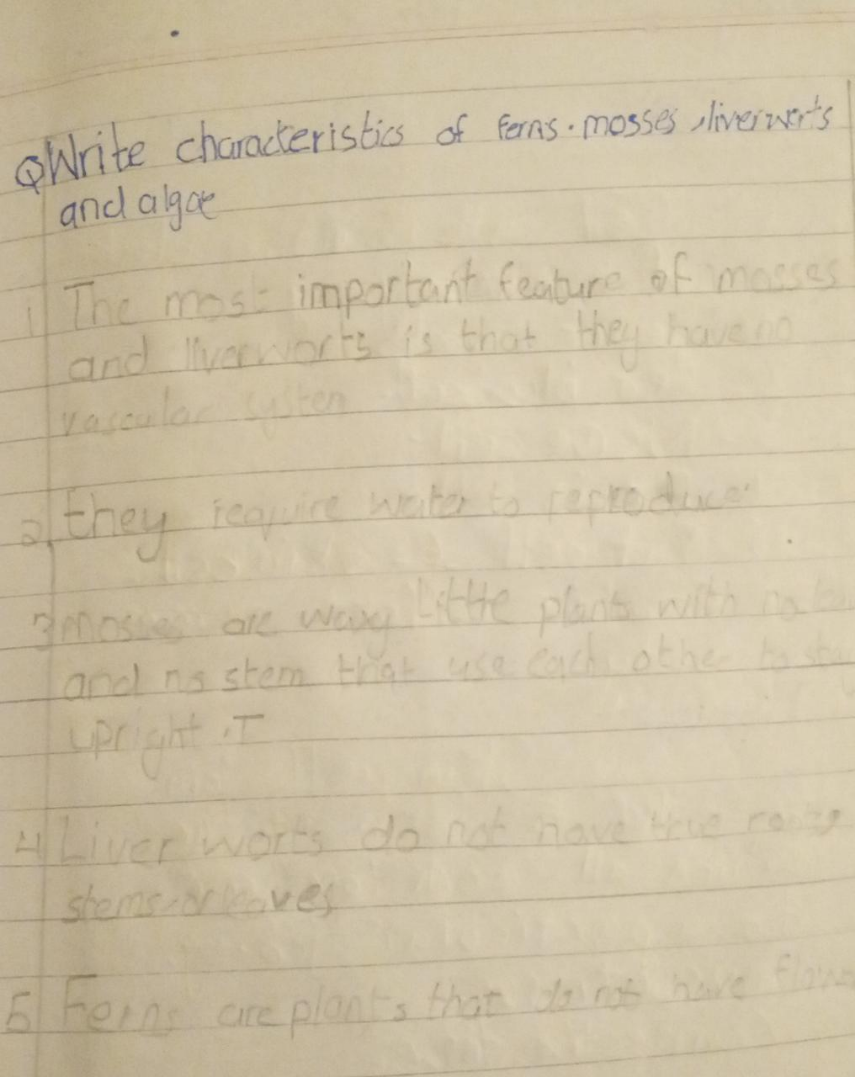 QWrite characteristics of Ferns. mosses, liverworts
and algae
1 The most important feature of mosses
and liverworts is that they have no
vascular system
2 they require water to reproduce.
3 mosses are waxy little plants with no
and no stem that use each other to stay
upright . I
4 Liver worts do not have true roots
stems or leaves
5 Ferns are plants that do not have